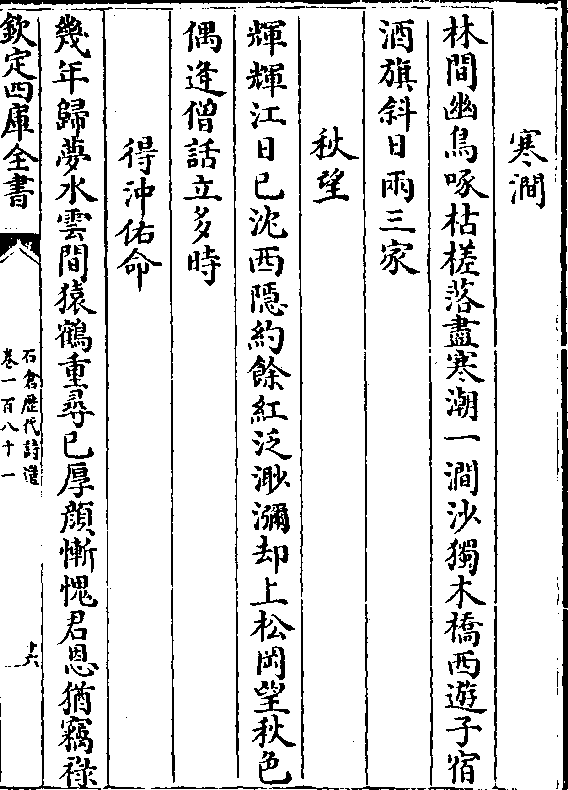 寒澗
林間幽鳥啄枯槎落盡寒潮一澗沙獨木橋西遊子宿
酒旗斜日兩三家
秋望
輝輝江日已沈西隱約餘紅泛渺瀰却上松岡望秋色
偶逢僧話立多時
得沖佑命
幾年歸夢水雲間猿鶴重尋已厚顏慚愧君恩猶竊祿
欽定四庫全書
石倉歴代詩選
卷一百八十一
十六